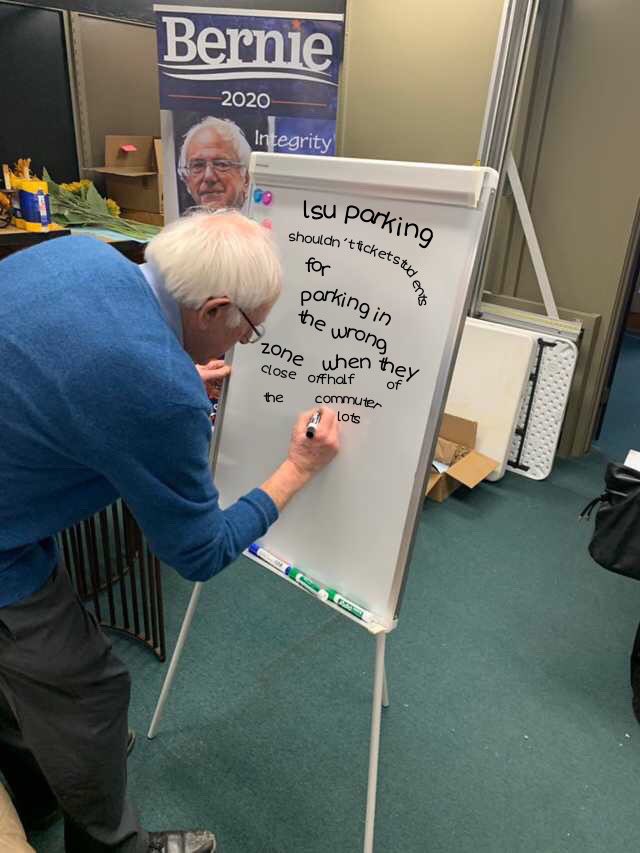 Bernie
2020
Integrity
lsu parking
shouldn't ticket students
for
parking in
the wrong
zone when they
close off half of
the commuter
lots